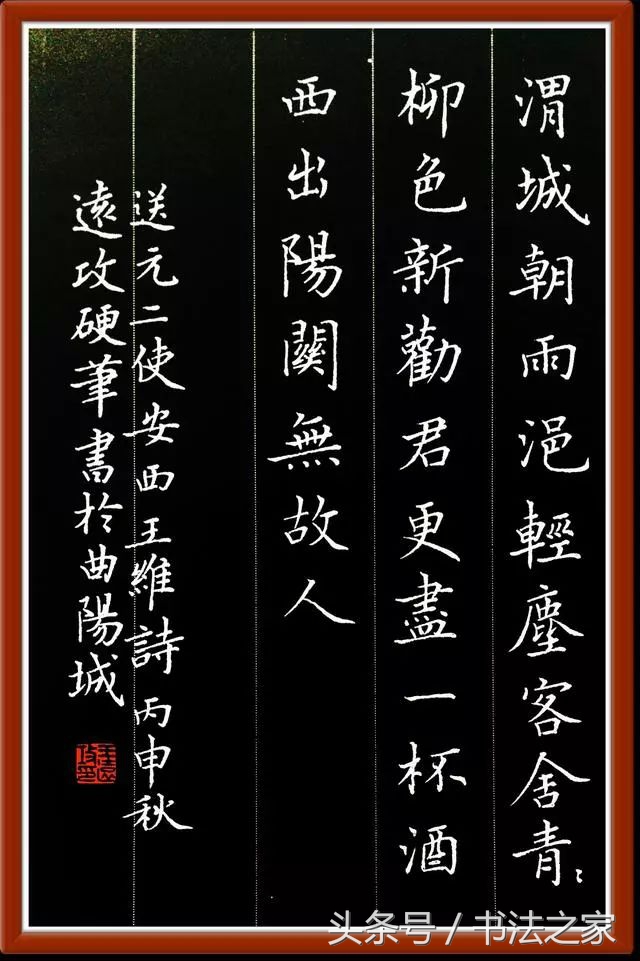 渭城朝雨浥輕塵客舍青〻
柳色新勸君更盡一杯酒
西出陽關無故人
送元二使安西王維詩丙申秋
遠攻硬筆書於曲陽城
头条号 / 书法之家